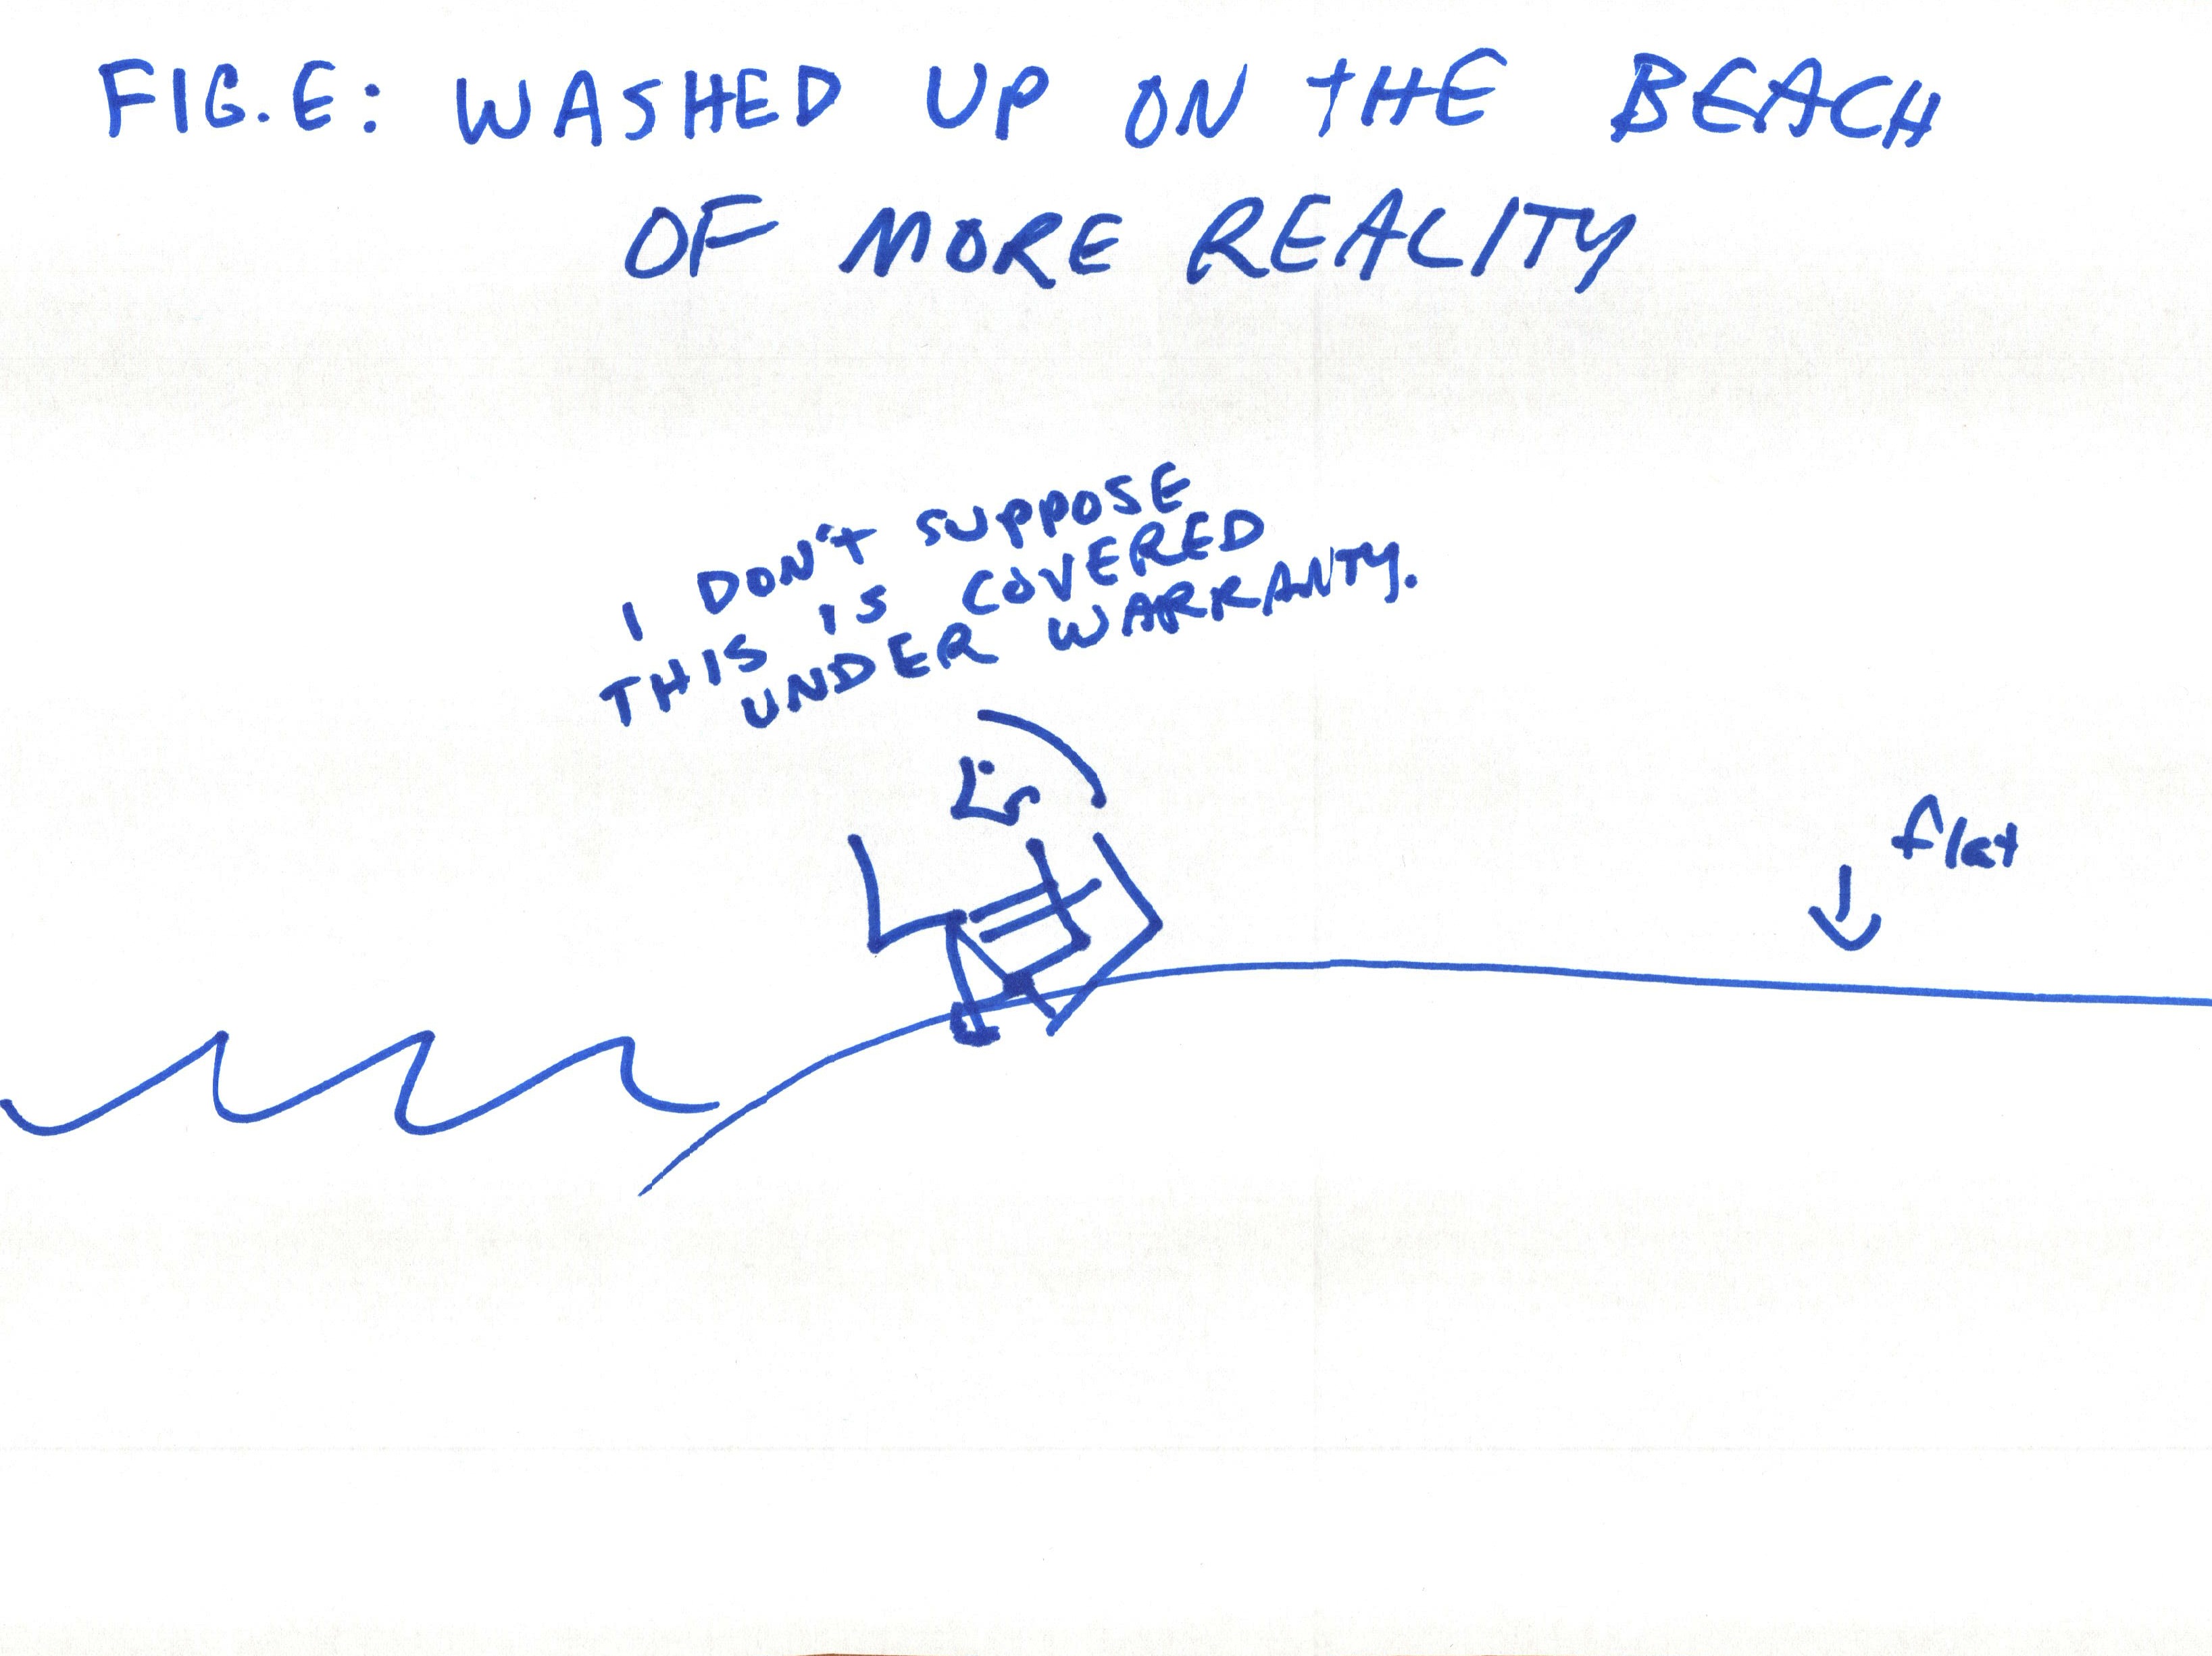 FIG.E: WASHED UP ON THE BEACH
OF MORE REALITY
I DON'T SUPPOSE
THIS IS COVERED
UNDER WARRANTY.
flat